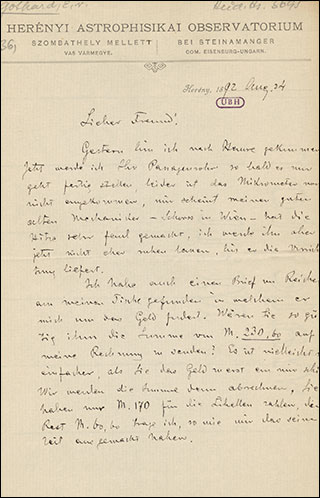 36,
HERÉNYI ASTROPHISIKAI OBSERVATORIUM
SZOMBATHELY MELLETT
BEI STEINAMANGER
VAS VÁRMEGYE.
COM. EISENBURG-UNGARN.
Herény, 1892 Aug. 24
UBH
Lieber Freund!
Gestern bin ich nach Hause gekommen
Jetzt werde ich Ihr so bald es nur
geht fertig stellen, leider ist das Mikrometer noch
nicht angekommen, mir scheint meinen guten
alten Mechaniker in Wien hat die
Hitze sehr faul gemacht, ich werde ihn aber
jetzt nicht eher ruhen lassen, bis er die
liefert.
Ich habe auch einen Brief von
am meinen Tische gefunden in welchem er
mich um das Geld fordert. Wären Sie so gü
tig ihm die Summe von M. 230,60 auf
meine Rechnung zu senden? Es ist vielleicht
einfacher, als Sie das Geld zuerst an mir
Wir werden die Summe dann abrechnen, Sie
haben nur M. 170 für die zahlen, den
Rest M. 60,60 trage ich, so wie wir das seiner
Zeit ausgemacht haben.